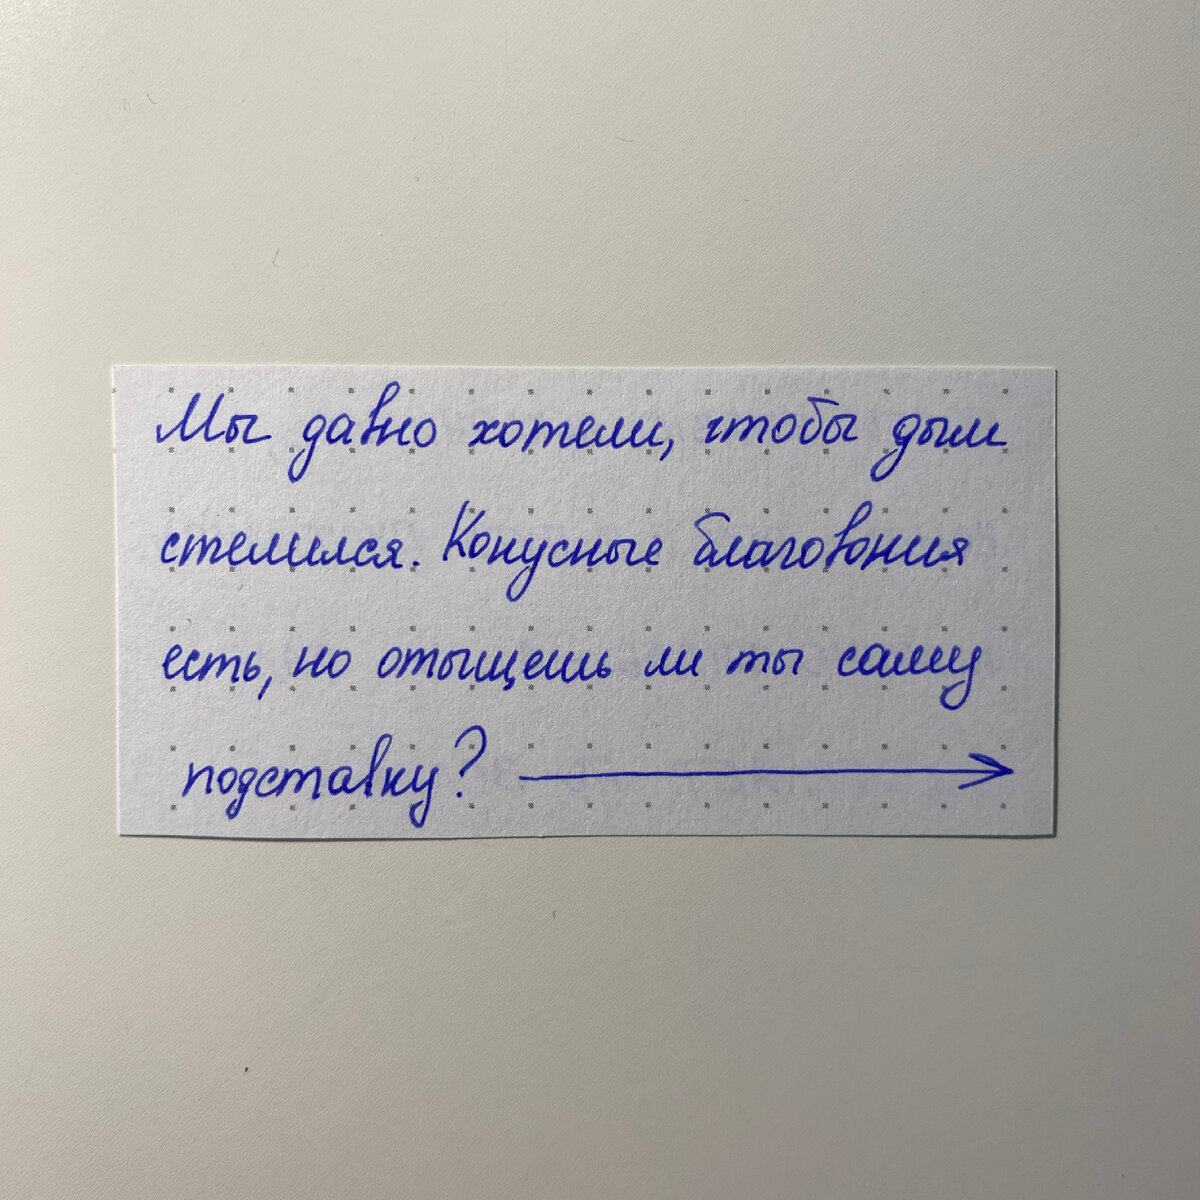 Мы давно хотели, чтобы дым
стелился. Конусные благовония
есть, но отыщешь ли ты саму
подставку?